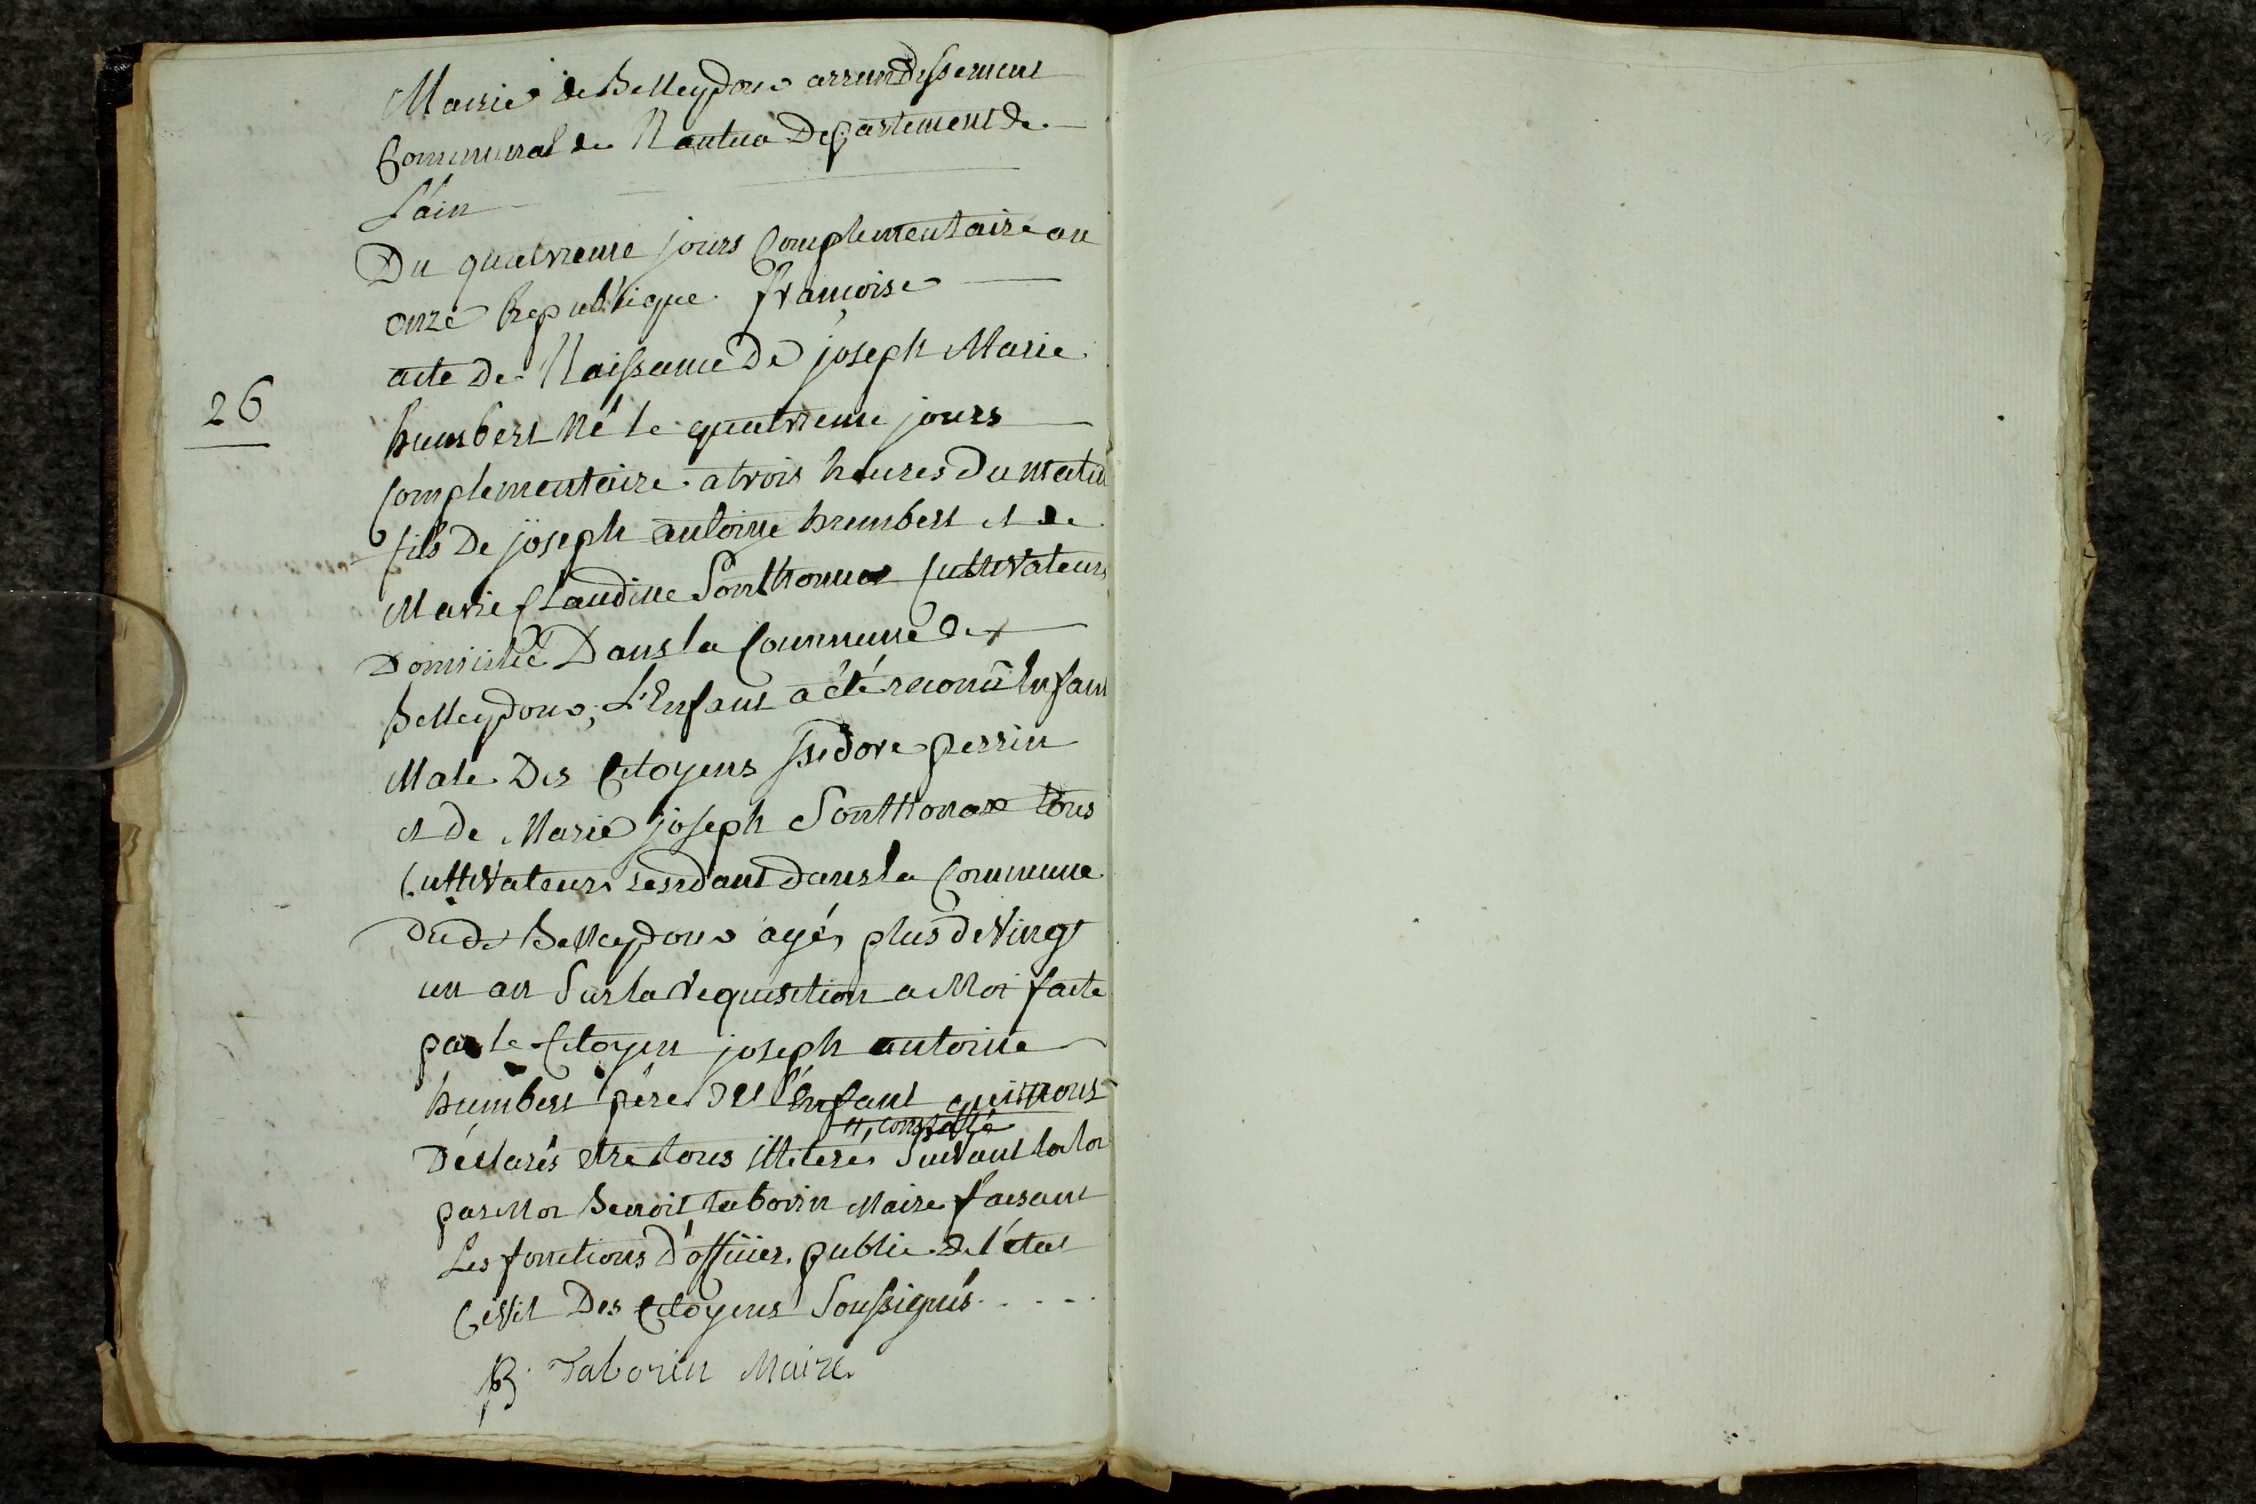 Mairie de Belleydoux arrundissement
Communal de Nantua Departement de
L'ain
Du quatrieme jours Complementaire an
onze Republique françoise
acte de Naissance De joseph Marie
26
humbert Né le quatrieme jours
Complementaire a trois heures Du matin
fils De joseph antoine humbert et de
Marie Claudine Sonthonnax Cultivateurs
Domicilié Dans la Commune de
Belleydoux, L'Enfant a été reconnû Enfant
Male Des Citoyens Isidore perrin
et de Marie joseph Sonthonax tous
Cultivateurs residant dans la Commune
dud. Belleydoux agés plus de Vingt
un an Sur la requisition a Moi faite
par le Citoyen joseph antoine
humbert père de l'Enfant qui nous
constaté
Déclarés etre tous illiterés Suivant la loi
par Moi Benoit taborin Maire faisant
Les fonctions d'officier public de l'état
Civil Des Citoyens Soussignés
B. Taborin Maire